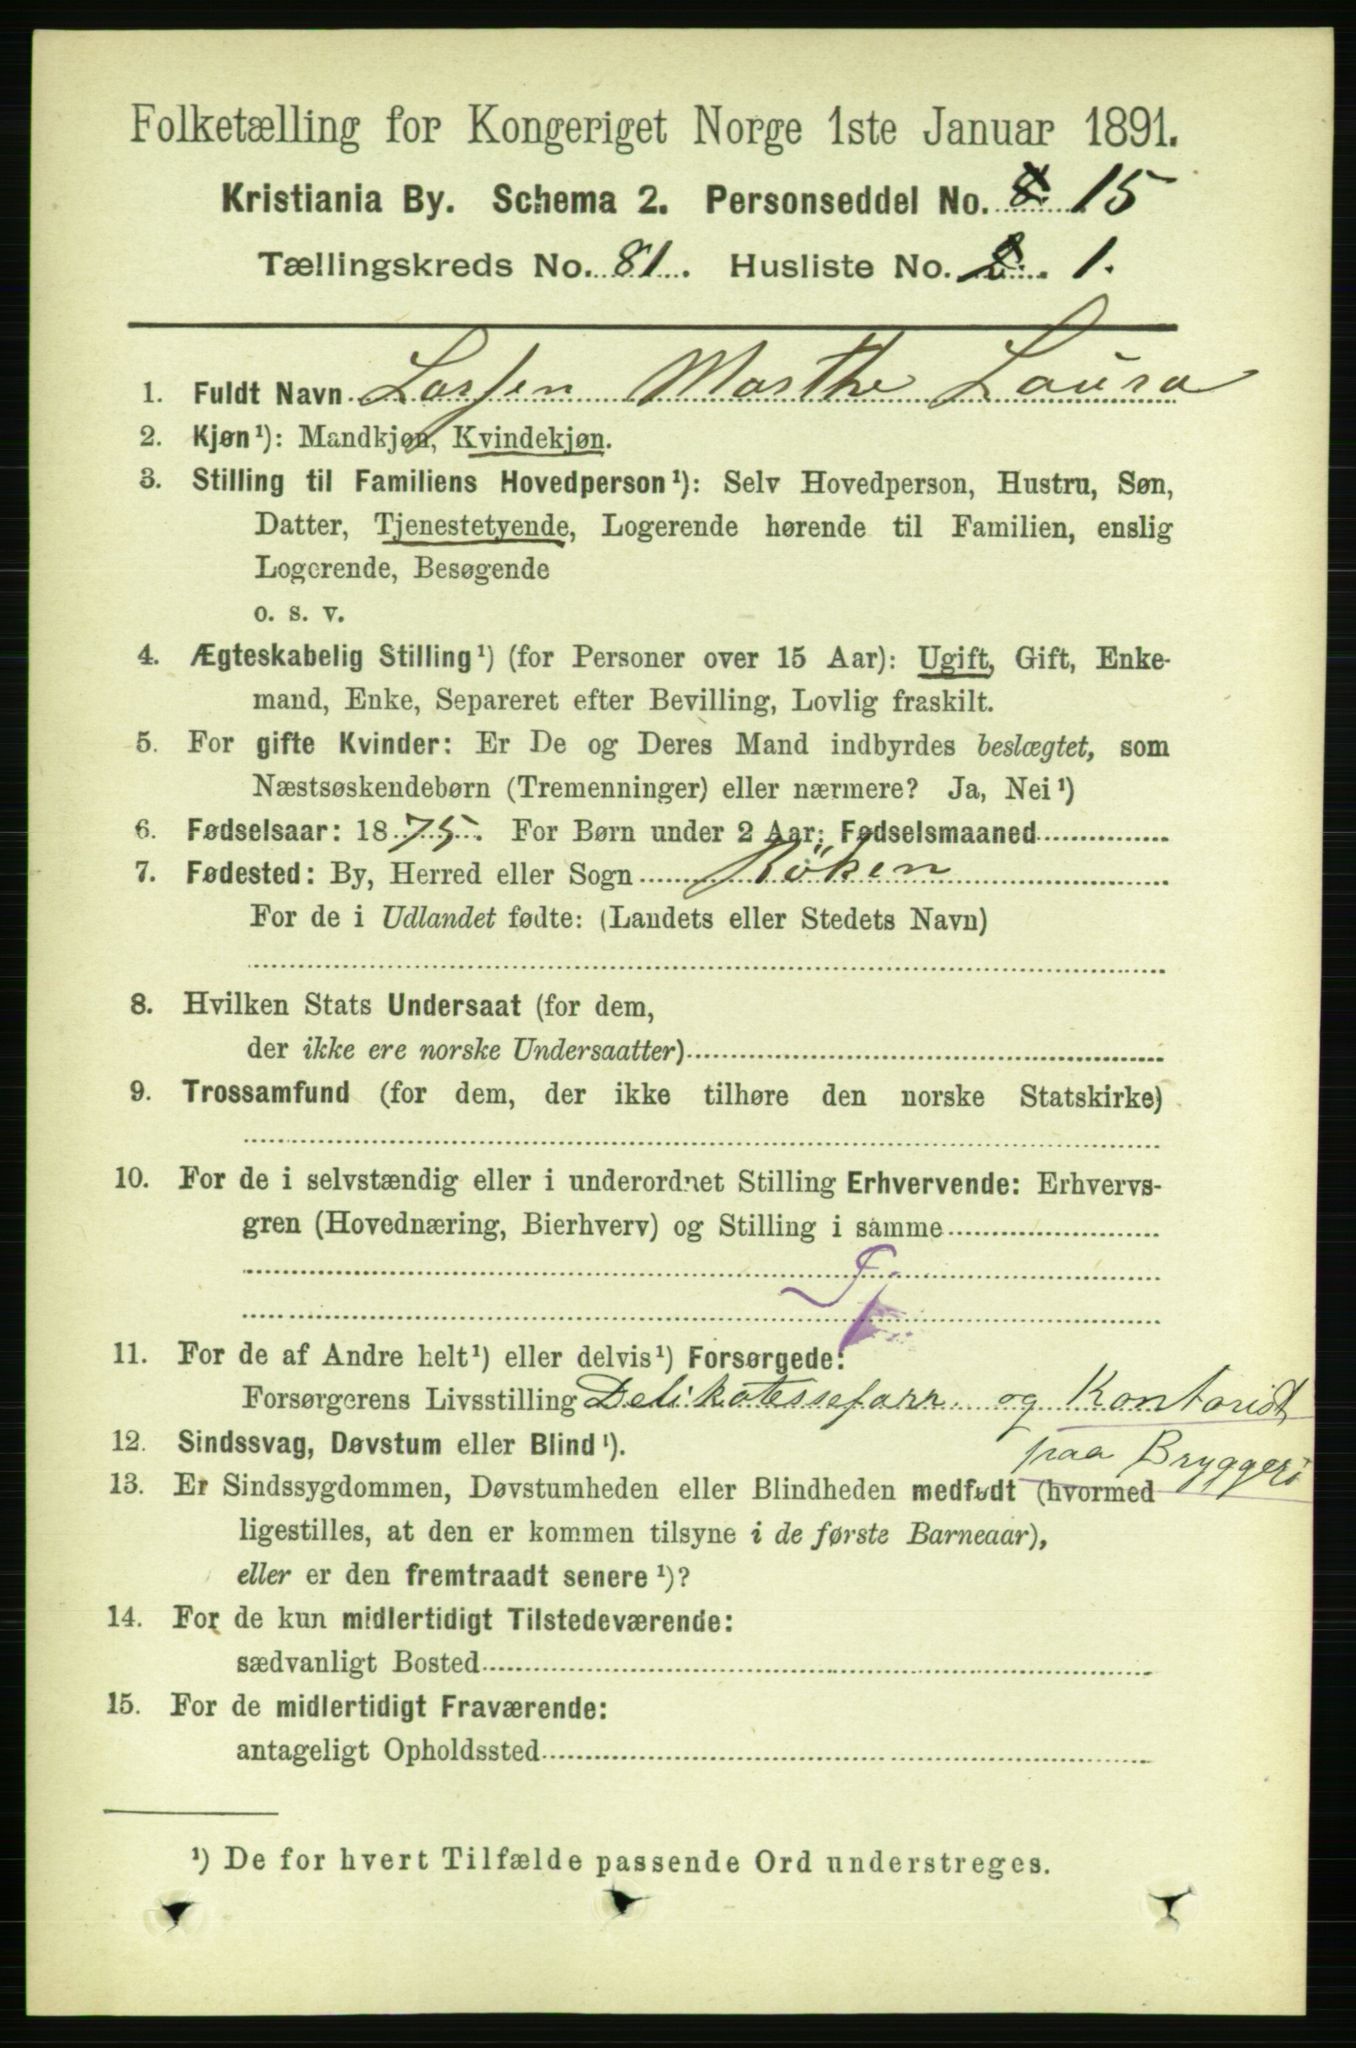 Folketælling for Kongeriget Norge 1ste Januar 1891.
Kristiania By. Schema 2. Personseddel No. 8 15
Tællingskreds No. 81. Husliste No. 2. 1.
1. Fuldt Navn Larsen Marthe Laura
2. Kjøn¹): Mandkjøn, Kvindekjøn.
3. Stilling til Familiens Hovedperson¹): Selv Hovedperson, Hustru, Søn,
Datter, Tjenestetyende, Logerende hørende til Familien, enslig
Logerende, Besøgende
o. s. v.
4. Ægteskabelig Stilling¹) (for Personer over 15 Aar): Ugift, Gift, Enke-
mand, Enke, Separeret efter Bevilling, Lovlig fraskilt.
5. For gifte Kvinder: Er De og Deres Mand indbyrdes beslægtet, som
Næstsøskendebørn (Tremenninger) eller nærmere? Ja, Nei¹)
6. Fødselsaar: 1875. For Børn under 2 Aar: Fødselsmaaned
7. Fødested: By, Herred eller Sogn Röken
For de i Udlandet fødte: (Landets eller Stedets Navn)
8. Hvilken Stats Undersaat (for dem,
der ikke ere norske Undersaatter)
9. Trossamfund (for dem, der ikke tilhøre den norske Statskirke)
10. For de i selvstændig eller i underordnet Stilling Erhvervende: Erhvervs-
gren (Hovednæring, Bierhverv) og Stilling i samme
11. For de af Andre helt¹) eller delvis¹) Forsørgede:
Forsørgerens Livsstilling Delikatesseforr. og Kontorist
paa Bryggeri
12. Sindssvag, Døvstum eller Blind¹).
13. Er Sindssygdommen, Døvstumheden eller Blindheden medfødt (hvormed
ligestilles, at den er kommen tilsyne i de første Barneaar),
eller er den fremtraadt senere¹)?
14. For de kun midlertidigt Tilstedeværende:
sædvanligt Bosted
15. For de midlertidigt Fraværende:
antageligt Opholdssted
¹) De for hvert Tilfælde passende Ord understreges.